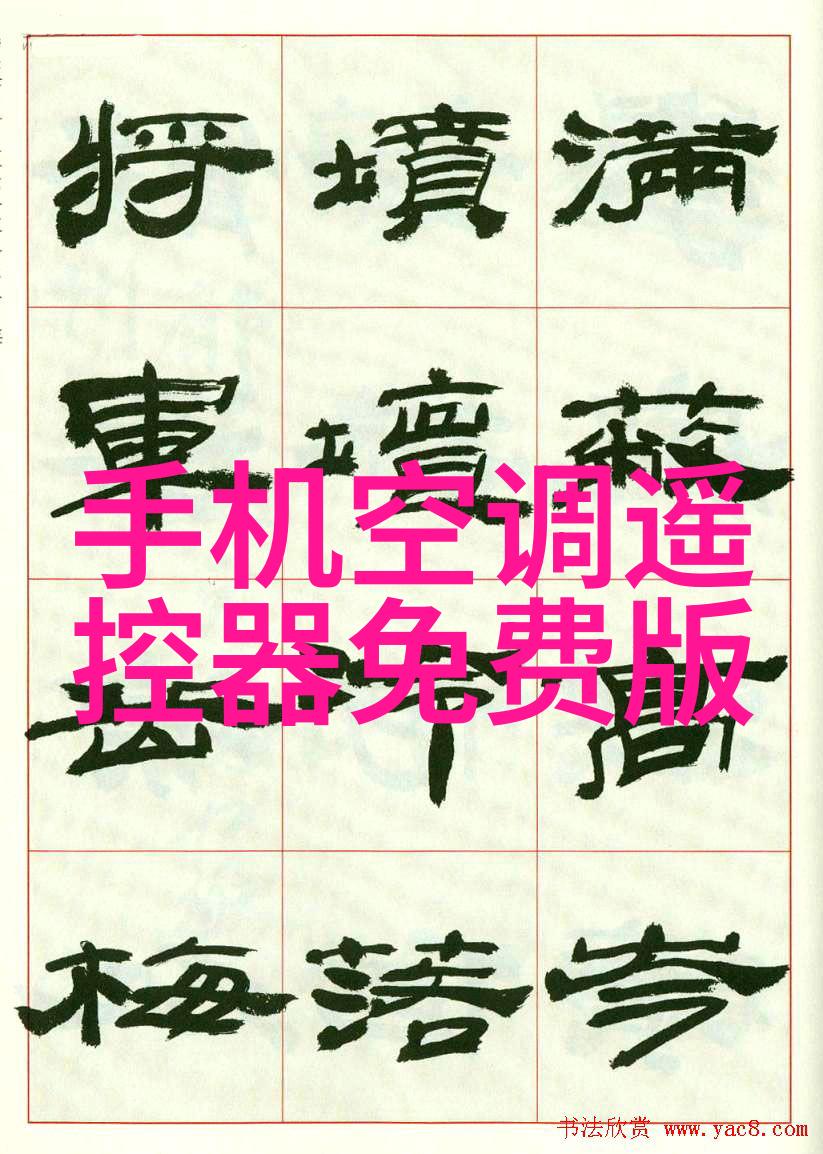 滿高岑
墳落
將軍岳梅
手机空调遥
控器免费版
书法欣赏 www.yac8.com